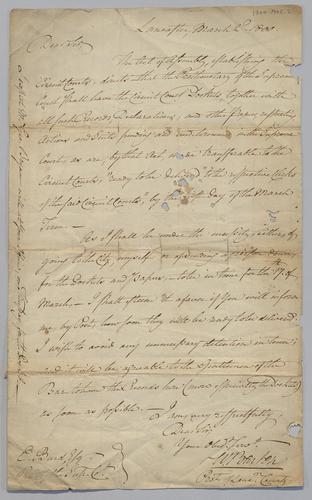 Lancaster March 2d 1800
Dear Sir
The Act of Assembly, establishing the
Circuit Courts, directs that the Prothonotary of the Supreme
Court shall have the Circuit Court Dockets, together with
all such Records, Declarations, and other Papers respecting
Actions and Suits pending and undetermined in the Supreme
Court, as are, by that Act, made transferable to the
Circuit Courts, "ready to be delivered to the respective Clerks
of the said Circuit Courts," by the day of the March
Term —
As I shall be under the necessity, either of
going to the City myself or of sending a person down
for the Dockets and Papers — to be in time for the
March — I shall esteem it a favor if you will inform
me, by Post, how soon they will be ready to be delivered.
I wish to avoid any unnecessary detention in Town;
and it will be agreeable to the Gentlemen of the
Bar to have the Records here (more especially the Dockets)
as soon as possible. — I am, very respectfully,
Dear Sir,
Your Obedt. Servt.
W Barton
E. Burd, Esq.